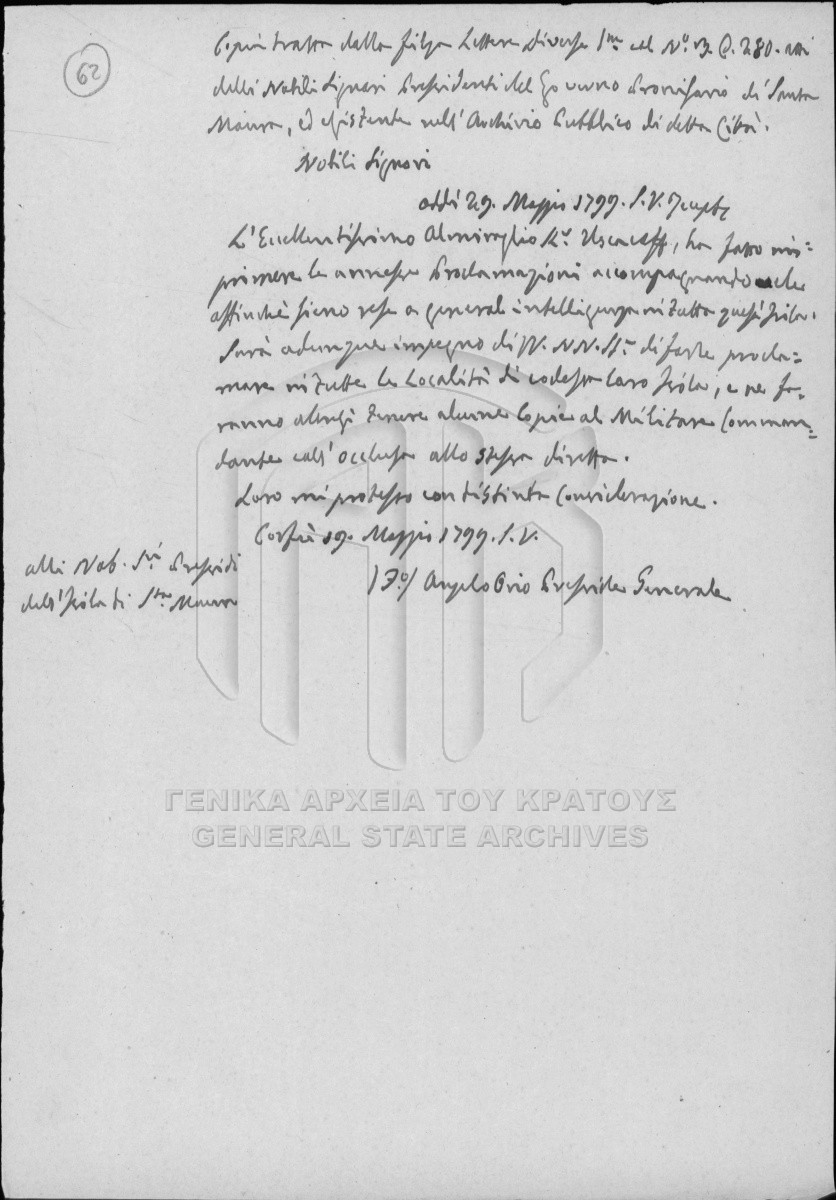 62
Copia tratta dalla filza Lettere Diverse I.ma al N.o 3. C. 280. atti
delli Nobili Signori Presidenti del Governo Provisorio di Santa
Maura, ed esistente nell'Archivio Pubblico di detta Città.
Nobili Signori
addi 29. Maggio 1799. S.V.
L'Eccellentissimo Almiraglio K.r Uscacoff, ha fatto im=
primere le annesse Proclamazioni accompagnando
affinchè sieno rese a generale intelligenza in tutta quest'Isola.
Sarà adunque impegno di VV. NN. SS.e di farle procla=
mare in tutte le Località di codesta loro Isola, e ne fa=
ranno altresì tenere alcune Copie al Militare Comman=
dante coll'occlusa allo stesso diretta.
Loro mi protesto con distinta Considerazione.
Corfù 19. Maggio 1799. S.V.
alli Nob. S.ri Presidi
dell'Isola di S.ta Maura
)F.o( Angelo Orio Preside Generale
ΓΕΝΙΚΑ ΑΡΧΕΙΑ ΤΟΥ ΚΡΑΤΟΥΣ
GENERAL STATE ARCHIVES